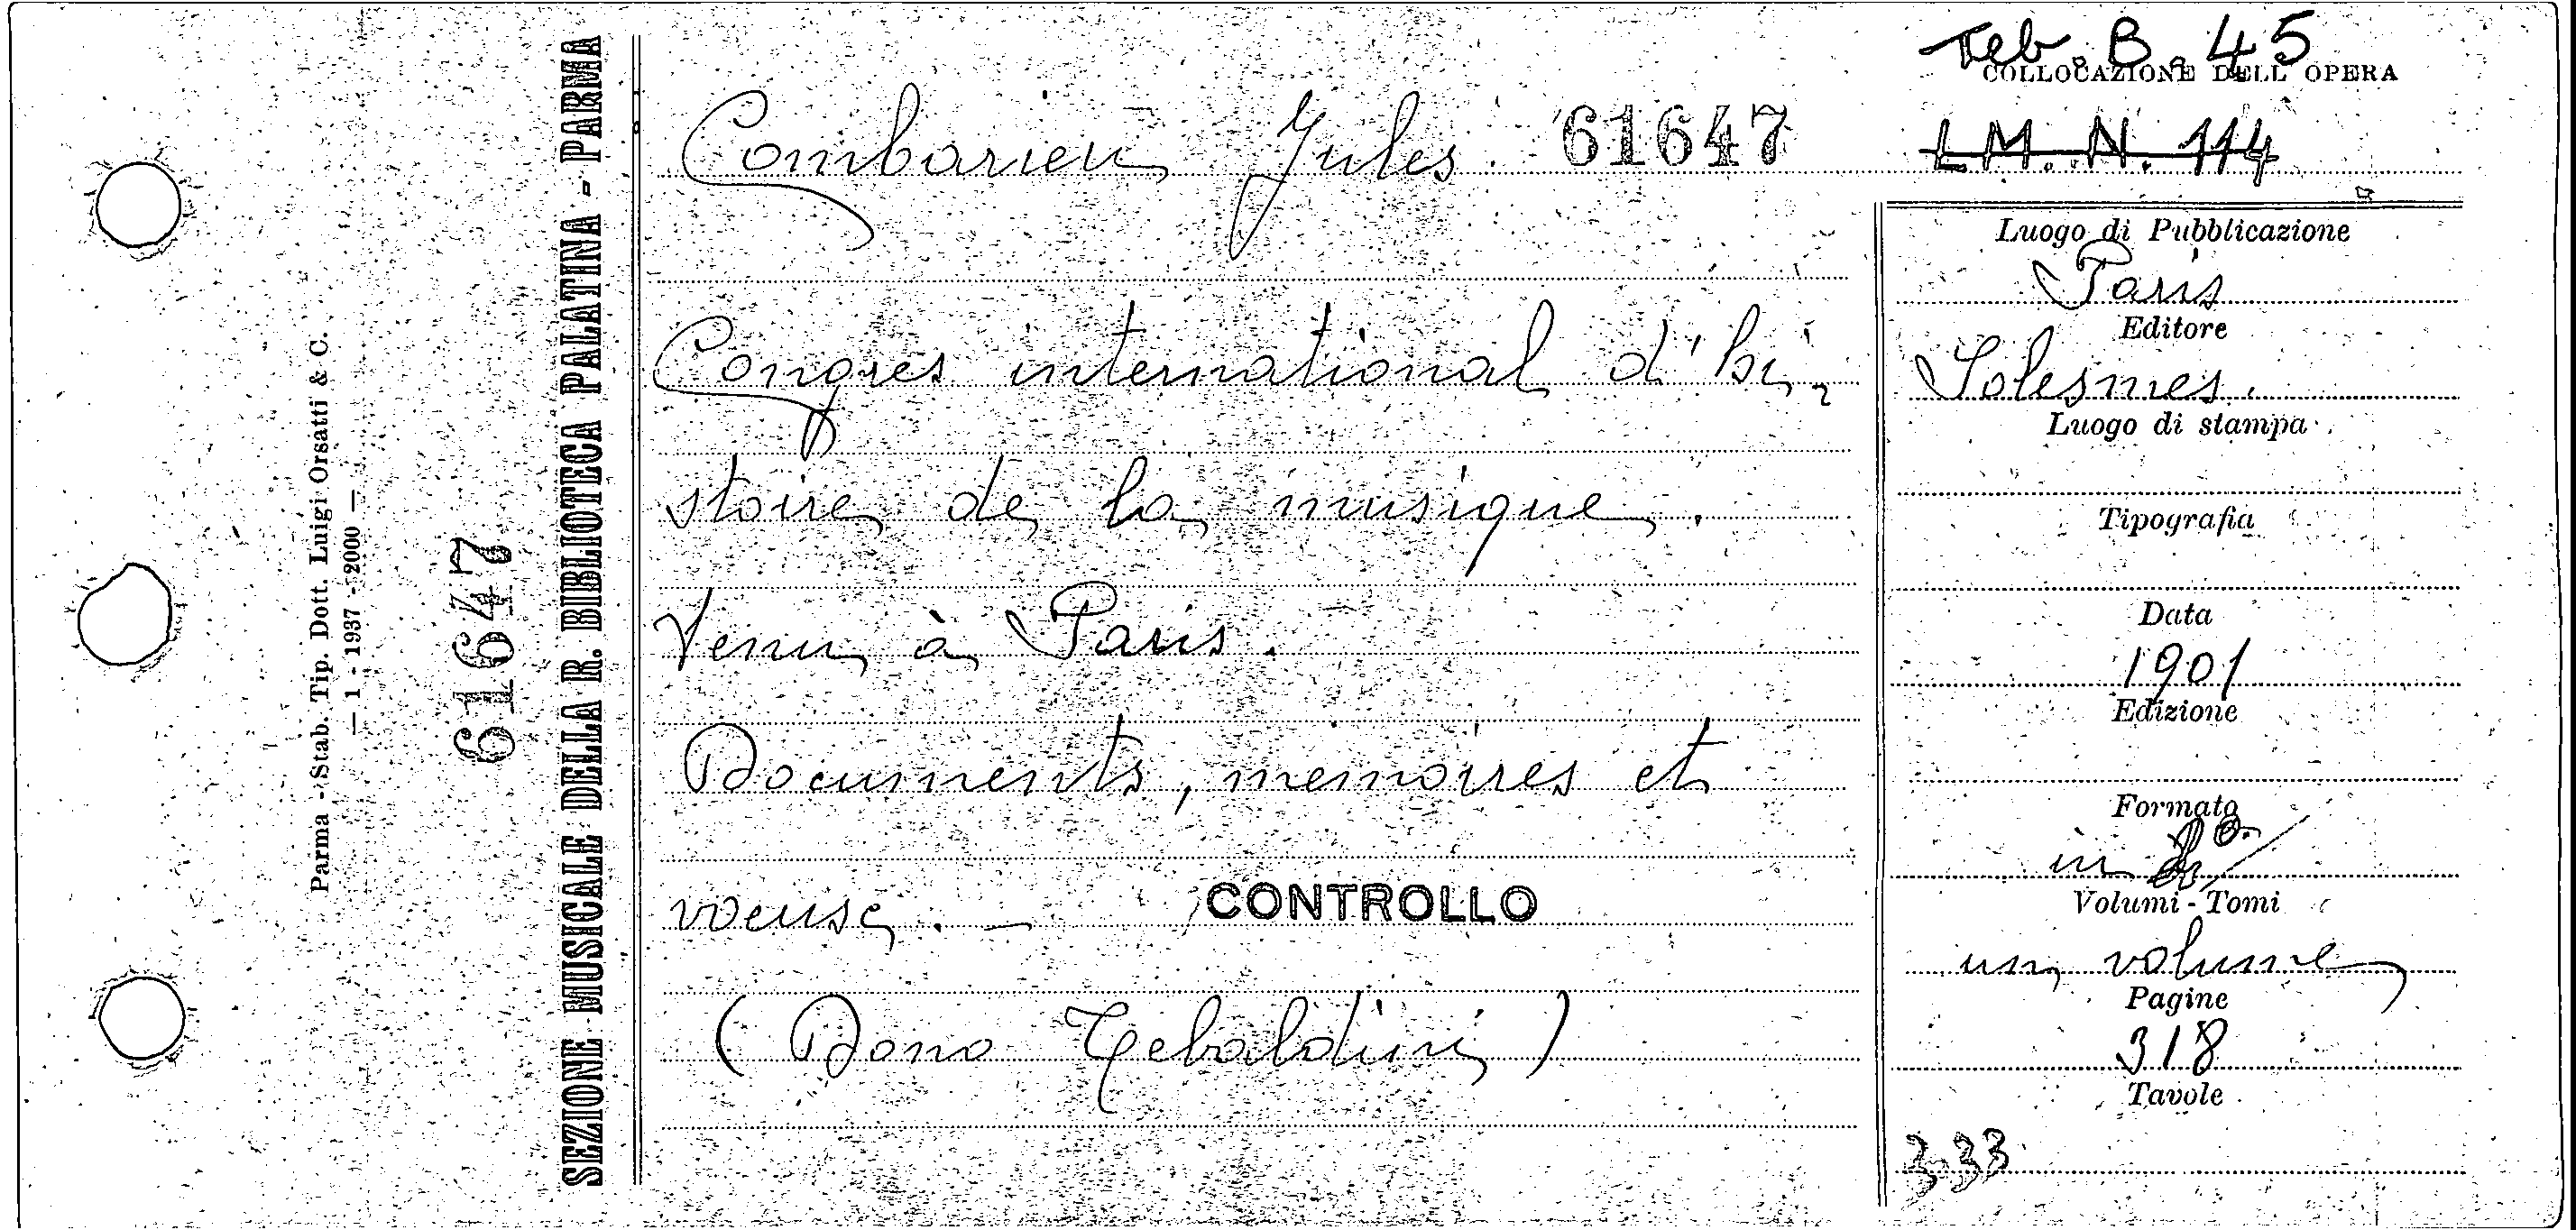 Teb. B. 45
COLLOCAZIONE DELL' OPERA
Combarieu Jules 61647
L.M. N. 114
Congrès international d'hi-
stoire de la musique.
Venu à Paris.
Documents, mémoires et
voeuse. —
CONTROLLO
(Dono Tebaldini)
Luogo di Pubblicazione
Paris
Editore
Solesmes.
Luogo di stampa
Tipografia
Data
1901
Edizione
Formato
in
Volumi - Tomi
un volume
Pagine
318
Tavole
333
SEZIONE MUSICALE DELLA R. BIBLIOTECA PALATINA - PARMA
61647
Parma - Stab. Tip. Dott. Luigi Orsatti & C.
— 1 - 1937 - 2000 —